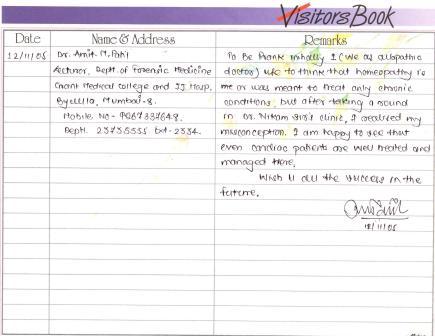 Visitors Book
Date Name & Address Remarks
12/11/05 Dr. Amit M. Patil
Lecturer, Dept of Forensic Medicine
Grant Medical college and JJ Hosp,
Byculla, Mumbai-8.
Mobile. No-
Deptt. 23735555 Ext-2334.
To Be frank initially I (we as allopathic
doctor) use to think that homeopathy is
me or was meant to treat only chronic
conditions, but after taking a round
in Dr. Nikam sir's clinic, I realized my
misconception. I am happy to see that
even cardiac patients are well treated and
managed Here.
Wish U all the success in the
future.
12/11/05